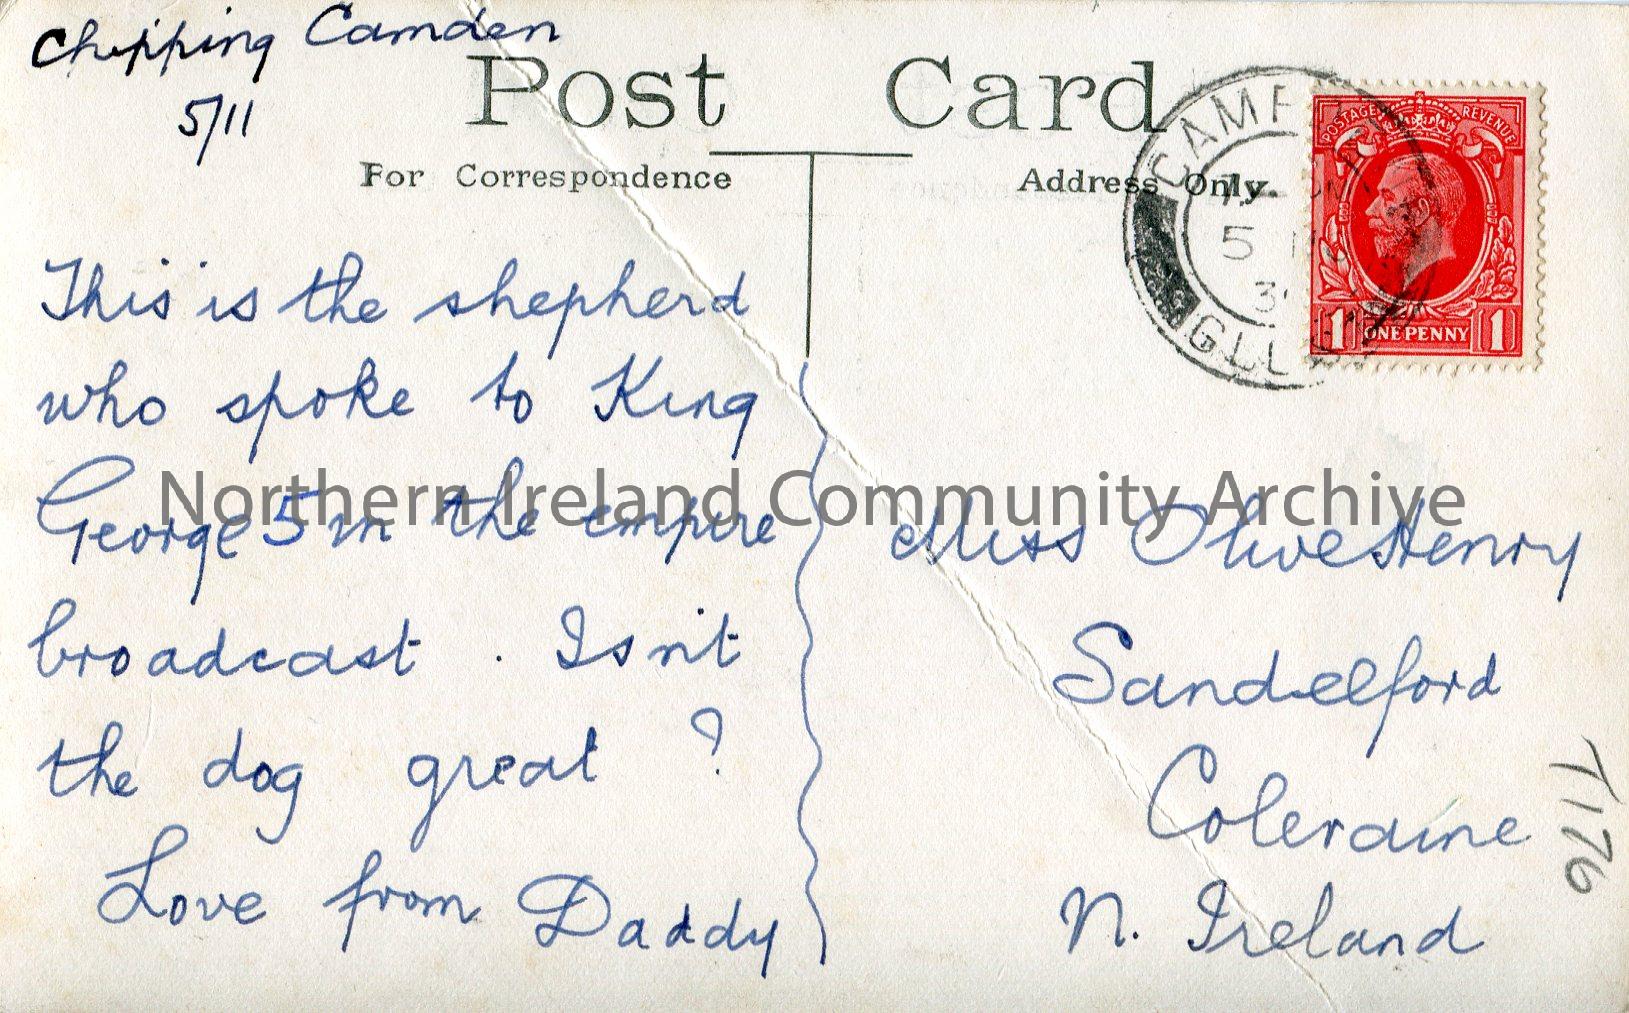 Chipping Camden
5/11
Post Card
For Correspondence
Address Only.
This is the shepherd
who spoke to King
George 5 in the empire
broadcast. Isn't
the dog great?
Love from Daddy
Miss Olive Henry
Sandelford
Coleraine
N. Ireland
T176
POSTAGE REVENUE
1 ONE PENNY 1
5
Northern Ireland Community Archive